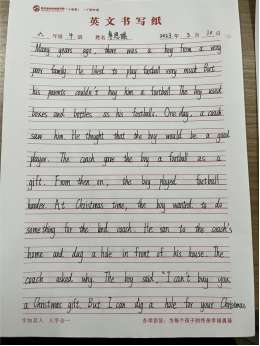 英文书写纸
六 年级 4 班 姓名 2023 年 3 月 20 日
Many years ago, there was a boy from a very
poor family. He liked to play football very much. But
his parents couldn't buy him a football. The boy used
boxes and bottles as his footballs. One day, a coach
saw him. He thought that the boy would be a good
player. The coach gave the boy a football as a
gift. From then on, the boy played football
harder. At Christmas time, the boy wanted to do
something for the kind coach. He ran to the coach's
home and dug a hole in front of his house. The
coach asked why. The boy said, "I can't buy you
a Christmas gift. But I can dig a hole for your Christmas
字如其人 人字合一 办学宗旨：为每个孩子的终身幸福奠基